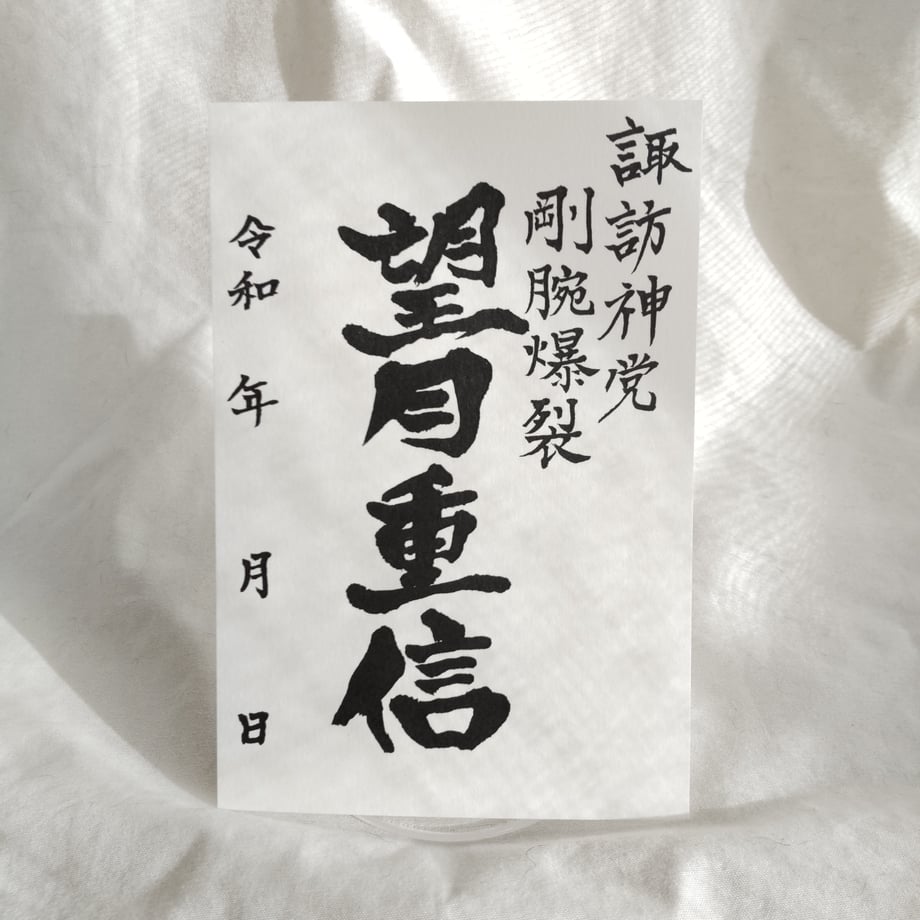 諏訪神党
剛腕爆裂
望月重信
令和　年　月　日